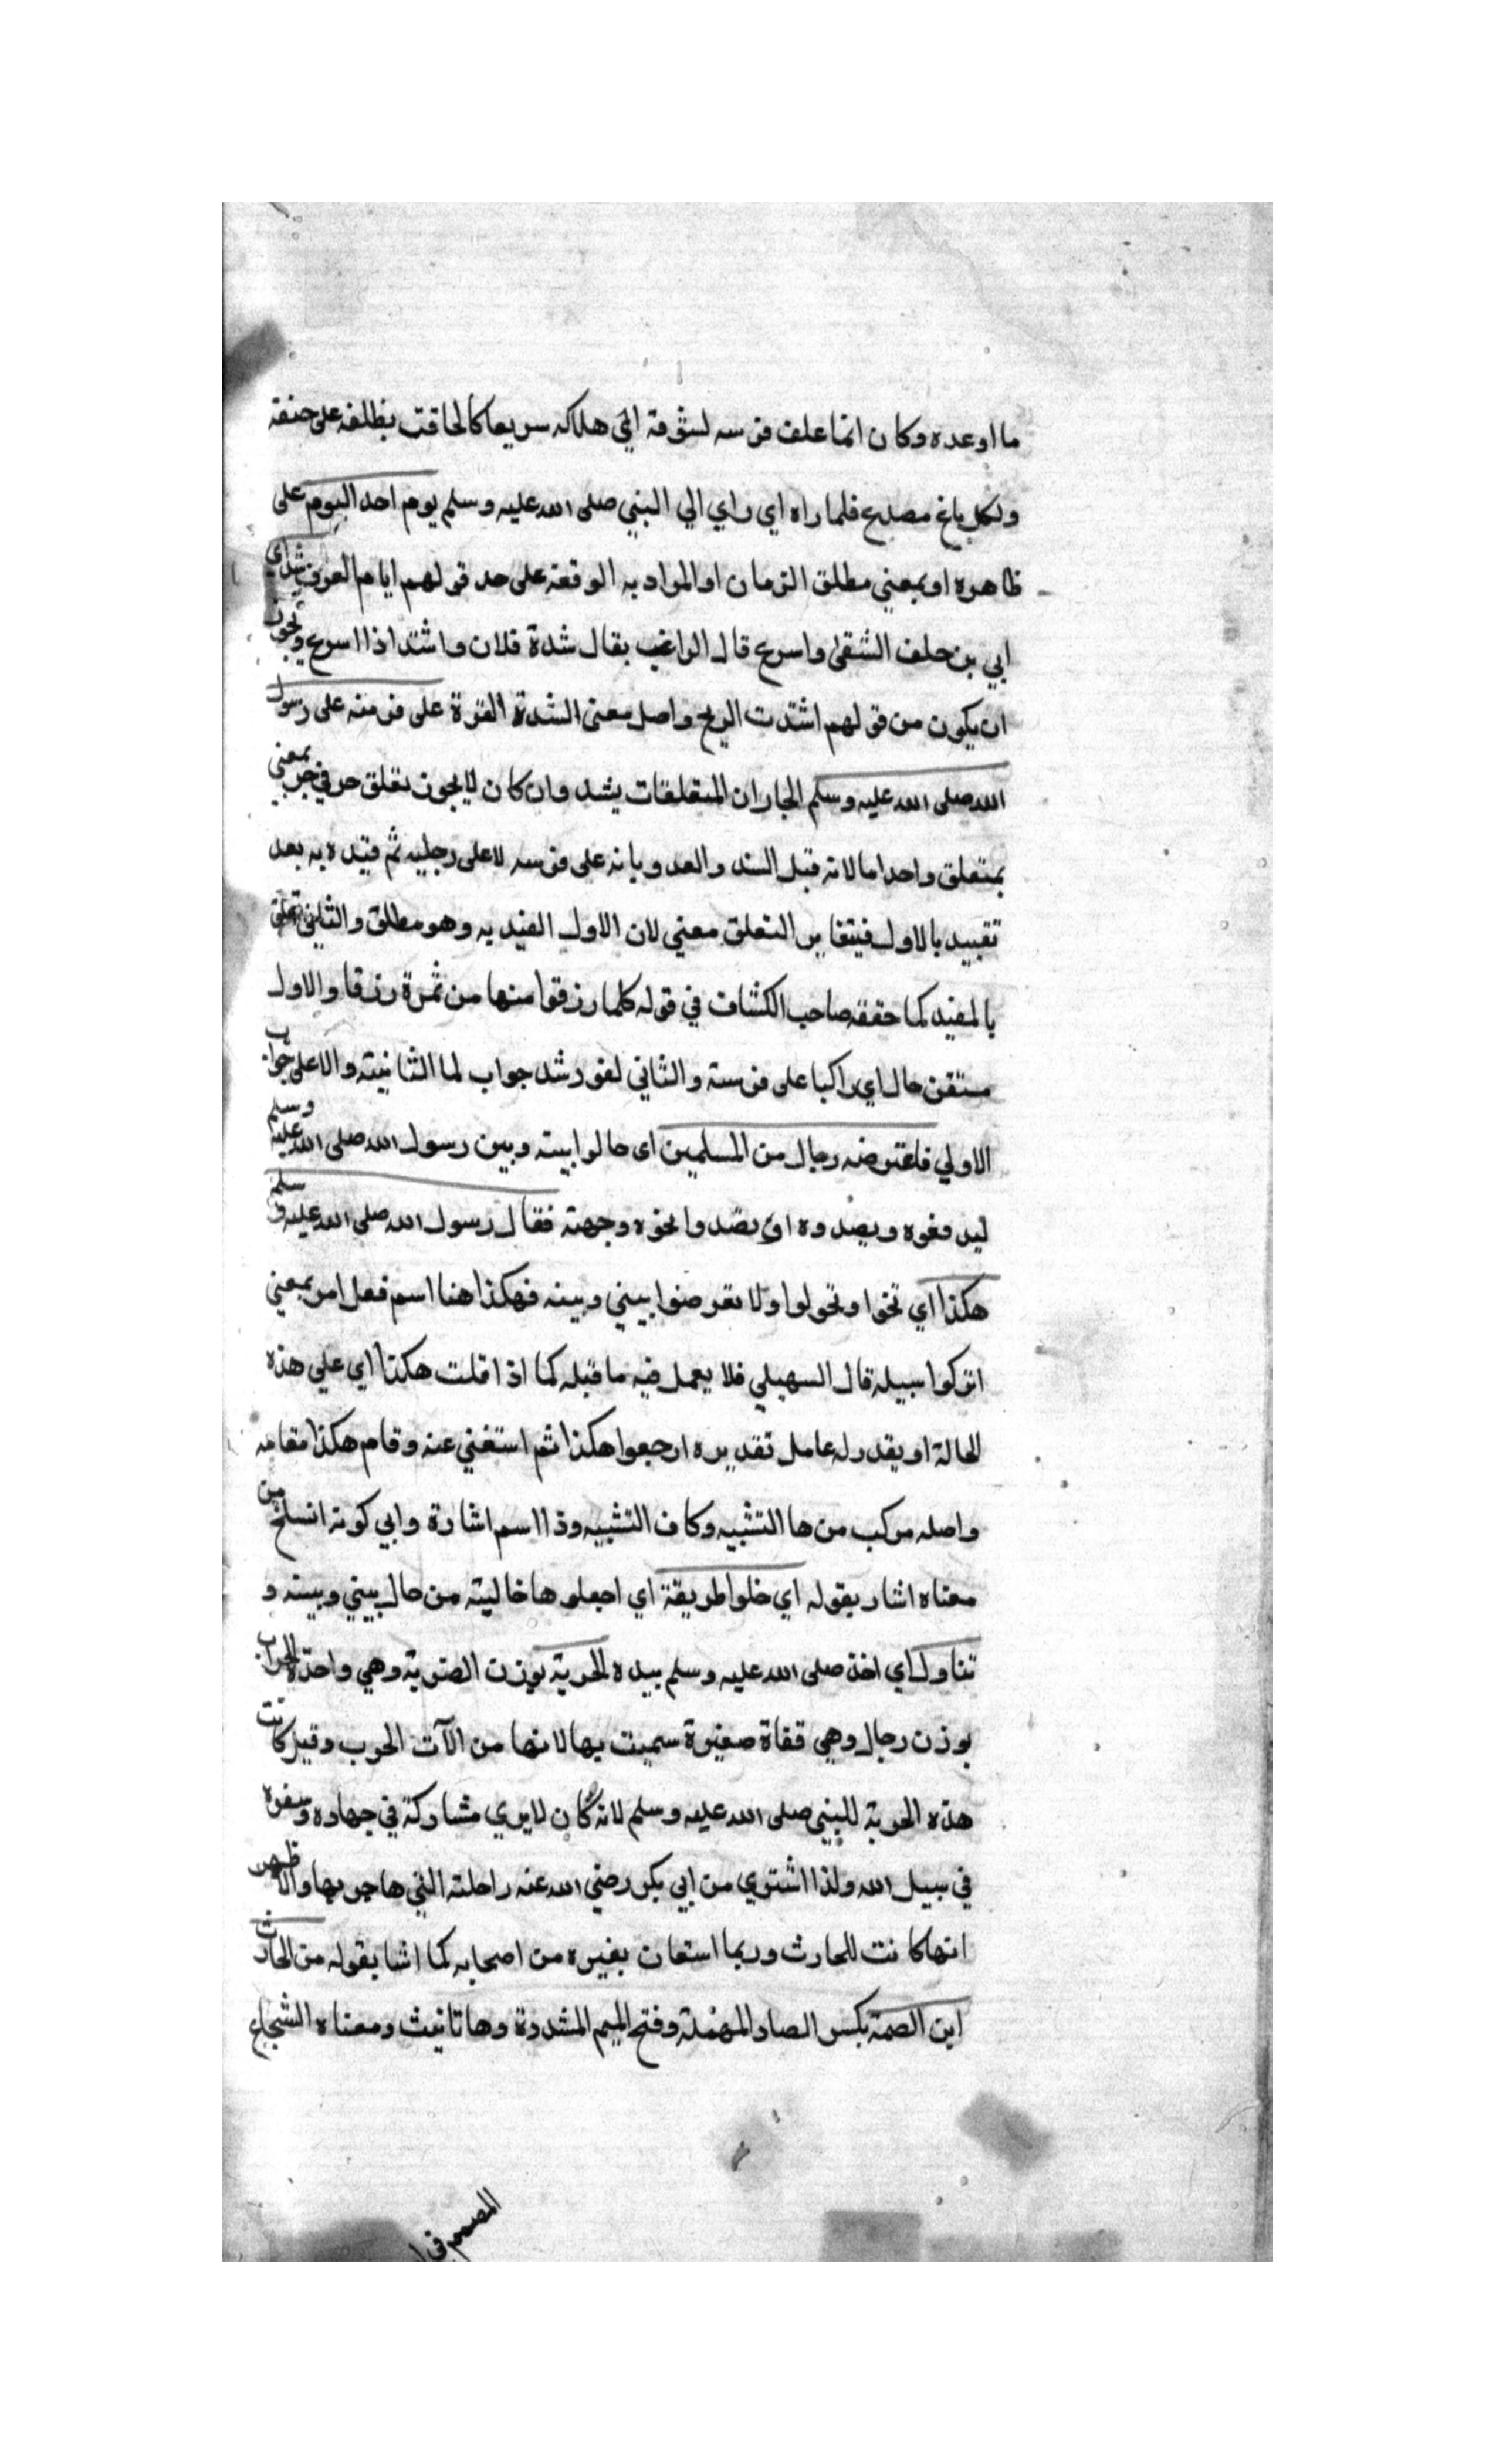 ما اوعده وكان انما علف فرسه لسوقة الي هلاكه سريعا كالحاقت بظلفه على حتفه
ولكل باغ مصرع فلما راه اي راي ابي النبي صلى الله عليه وسلم يوم احد اليوم على
ظاهره او بمعني مطلق الزمان او المراد به الوقعة على حد قولهم ايام العرب شد اي
ابي بن خلف الشقي واسرع قال الراغب يقال شدة فلان واشتد اذا اسرع ويجوز
ان يكون من قولهم اشتدت الريح واصل معنى الشدة القوة على فرسه على رسول
الله صلى الله عليه وسلم الجاران المتعلقات بشد وان كان لا يجوز تعلق حرفي جر بمعني
بمتعلق واحد اما لانه قبل الشد والعدو بانه على فرسه لا على رجليه ثم قيده به بعد
تقييد بالاول فيتغاير التعلق معني لان الاول القيد به وهو مطلق والثاني تعلق
بالمقيد كما حققه صاحب الكشاف في قوله كلما رزقوا منها من ثمرة رزقا والاول
مستقر حال اي راكبا على فرسه والثاني لغو وشد جواب لما الثانية والاعلى جواب
الاولي فاعترضه رجال من المسلمين اى حالوا بينه وبين رسول الله صلى الله عليه وسلم
ليدفعوه ويصدوه اي بصدوا نحوه وجهته فقال رسول الله صلى الله عليه وسلم
هكذا اي تنحوا وتحولوا ولا تعرضوا بيني وبينه فهكذا هنا اسم فعل امر بمعني
اتركوا سبيله قال السهيلي فلا يعمل فيه ما قبله كما اذا قلت هكذا اي علي هذه
الحالة او يقدر له عامل تقديره ارجعوا هكذا ثم استغني عنه وقام هكذا مقامه
واصله مركب من ها التنبيه وكاف التشبيه وذا اسم اشارة وابي كونه انسلخ من
معناه اشار بقوله اي خلوا طريقة اي اجعلوها خالية من حال بيني وبينه و
تناول اي اخذ صلى الله عليه وسلم بيده الحربة بوزن الضربة وهي واحدة الحراب
بوزن رجال وهي قناة صغيرة سميت بها لانها من الآت الحرب وقيل كانت
هذه الحربة للنبي صلى الله عليه وسلم لانه كان لا يري مشاركة في جهاده وسفره
في سبيل الله ولذا اشتري من ابي بكر رضي الله عنه راحلته التي هاجر بها والاظهر
انها كانت للحارث وربما استعان بغيره من اصحابه كما اشا بقوله من الحارث
ابن الصمة بكسر الصاد المهملة وفتح الميم المشددة وها تانيث ومعناه الشجاع
المصمم في